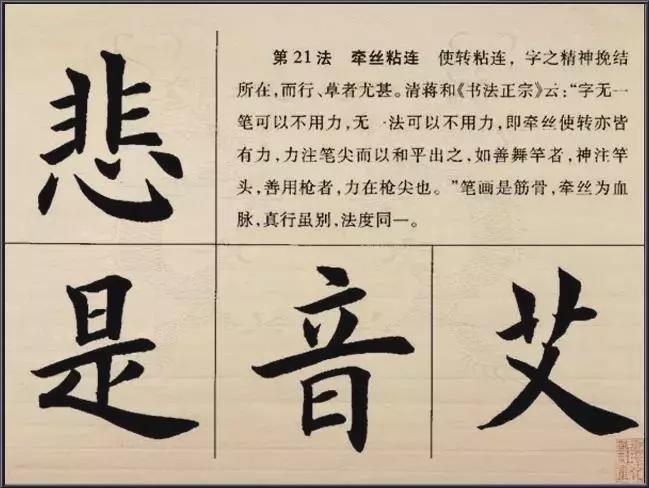 悲
第21法 牵丝粘连 使转粘连，字之精神挽结
所在，而行、草者尤甚。清蒋和《书法正宗》云：“字无一
笔可以不用力，无一法可以不用力，即牵丝使转亦皆
有力，力注笔尖而以和平出之，如善舞竿者，神注竿
头，善用枪者，力在枪尖也。”笔画是筋骨，牵丝为血
脉，真行虽别，法度同一。
是 音 艾